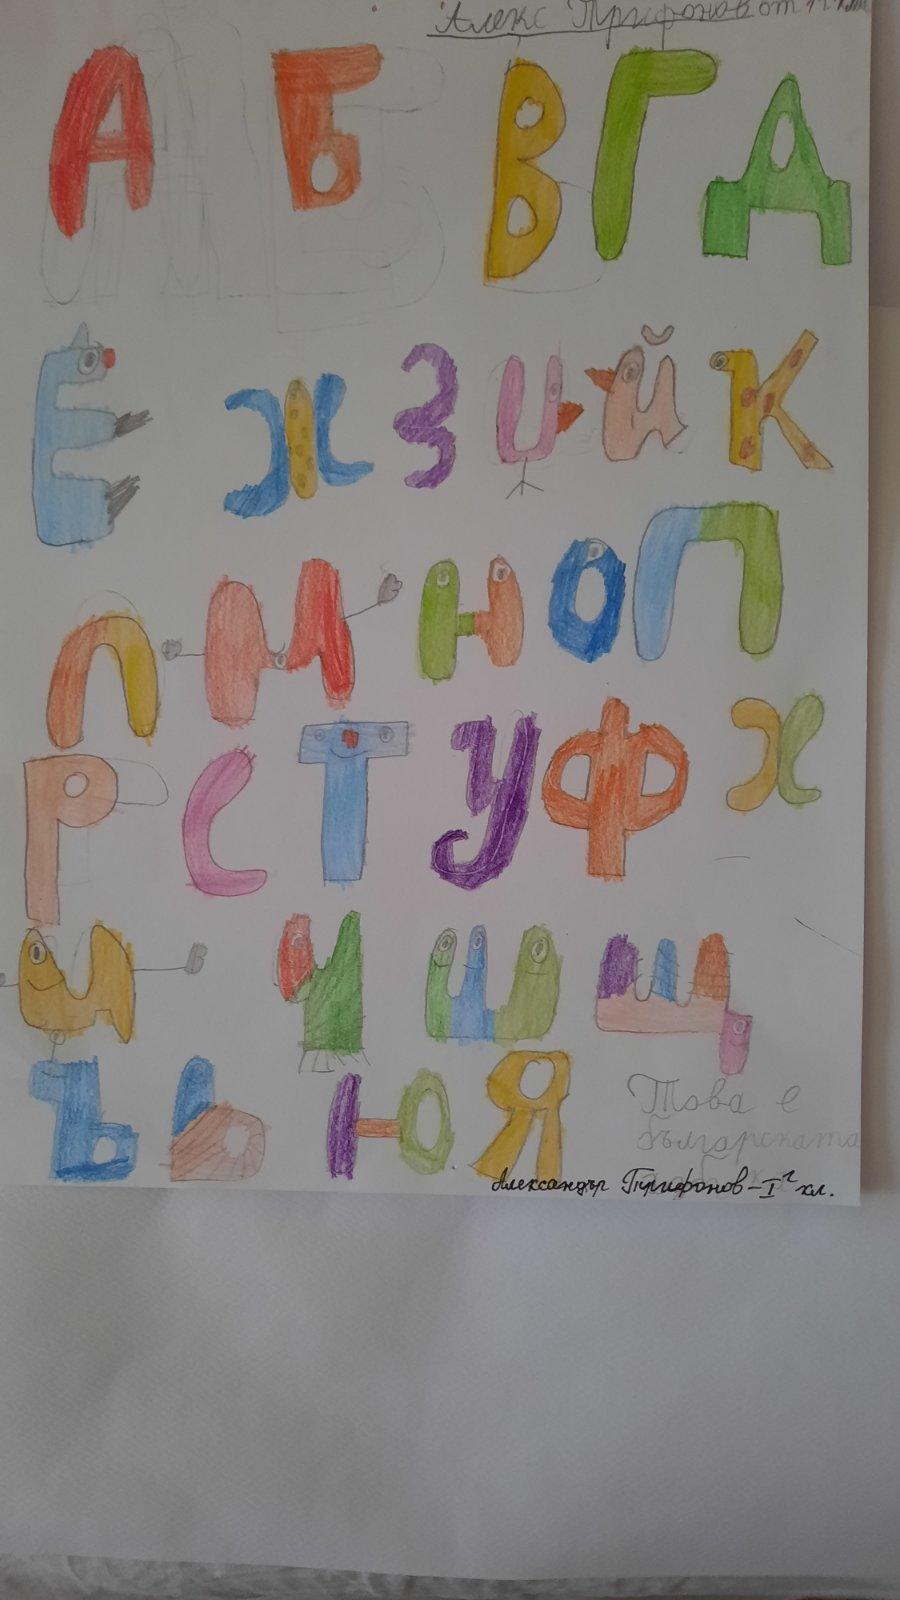 Алекс Трифонов от
А Б В Г Д
Е Ж З И Й К
Л М Н О П
Р С Т У Ф Х
Ц Ч Ш Щ
Ъ Ь Ю Я
Това е
българската
Александър Трифонов - I² кл.